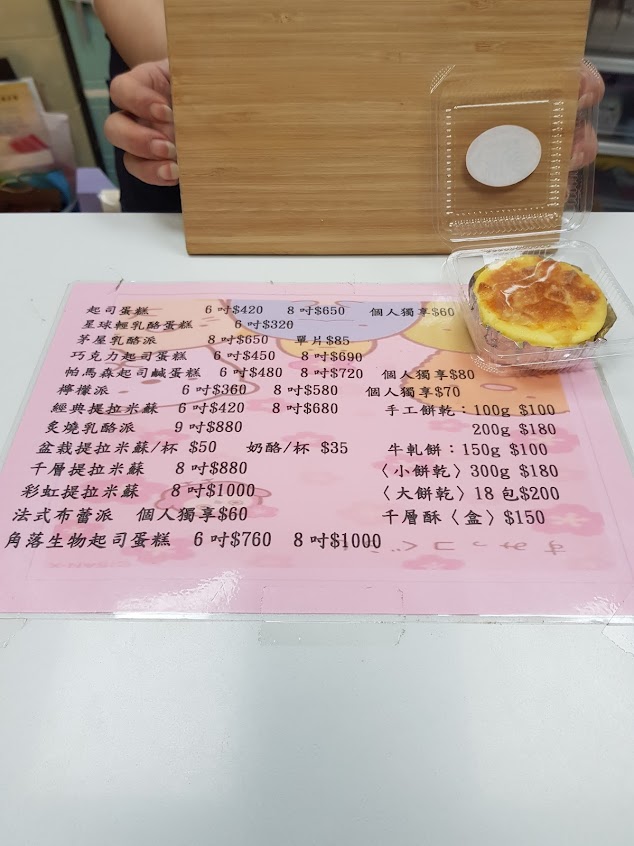 起司蛋糕 6吋$420 8吋$650 個人獨享$60
星球輕乳酪蛋糕 6吋$320
茅屋乳酪派 8吋$650 單片$85
巧克力起司蛋糕 6吋$450 8吋$690
帕馬森起司鹹蛋糕 6吋$480 8吋$720 個人獨享$80
檸檬派 6吋$360 8吋$580 個人獨享$70
經典提拉米蘇 6吋$420 8吋$680 手工餅乾：100g $100
炙燒乳酪派 9吋$880 200g $180
盆栽提拉米蘇/杯 $50 奶酪/杯 $35 牛軋餅：150g $100
千層提拉米蘇 8吋$880 〈小餅乾〉300g $180
彩虹提拉米蘇 8吋$1000 〈大餅乾〉18包$200
法式布蕾派 個人獨享$60 千層酥〈盒〉$150
角落生物起司蛋糕 6吋$760 8吋$1000